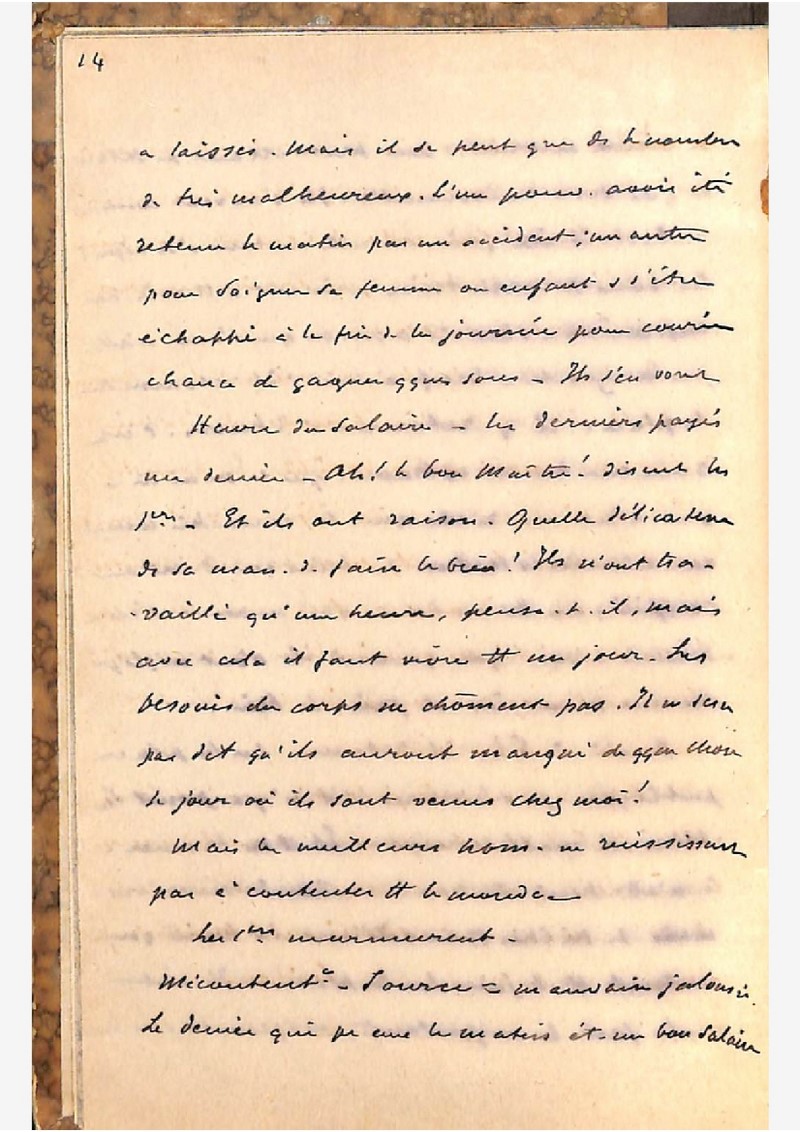 14
a laissés. Mais il se peut que ds le nombre
de très malheureux. L'un pouv. avoir été
retenu le matin par un accident ; un autre
pour soigner sa femme ou enfant s s'être
échappé à la fin de la journée pour courir
chance de gagner qques sous - Ils s'en vont
Heure du salaire - les derniers payés
un denier - Ah! le bon Maître! disent les
1ers - Et ils ont raison. Quelle délicatesse
ds sa man. d. faire le bien! Ils n'ont tra-
-vaillé qu'une heure, pense-t-il, mais
avec cela il faut vivre tt un jour. Les
besoins du corps ne chôment pas. Il ne sera
pas dit qu'ils auront manqué de qque chose
le jour où ils sont venus chez moi!
Mais les meilleurs hom. ne réussissent
pas à contenter tt le monde -
Les 1ers murmurent -
Mécontentt - Source = mauvaise jalousie.
Le denier qui pr eux le matin ét. un bon salaire